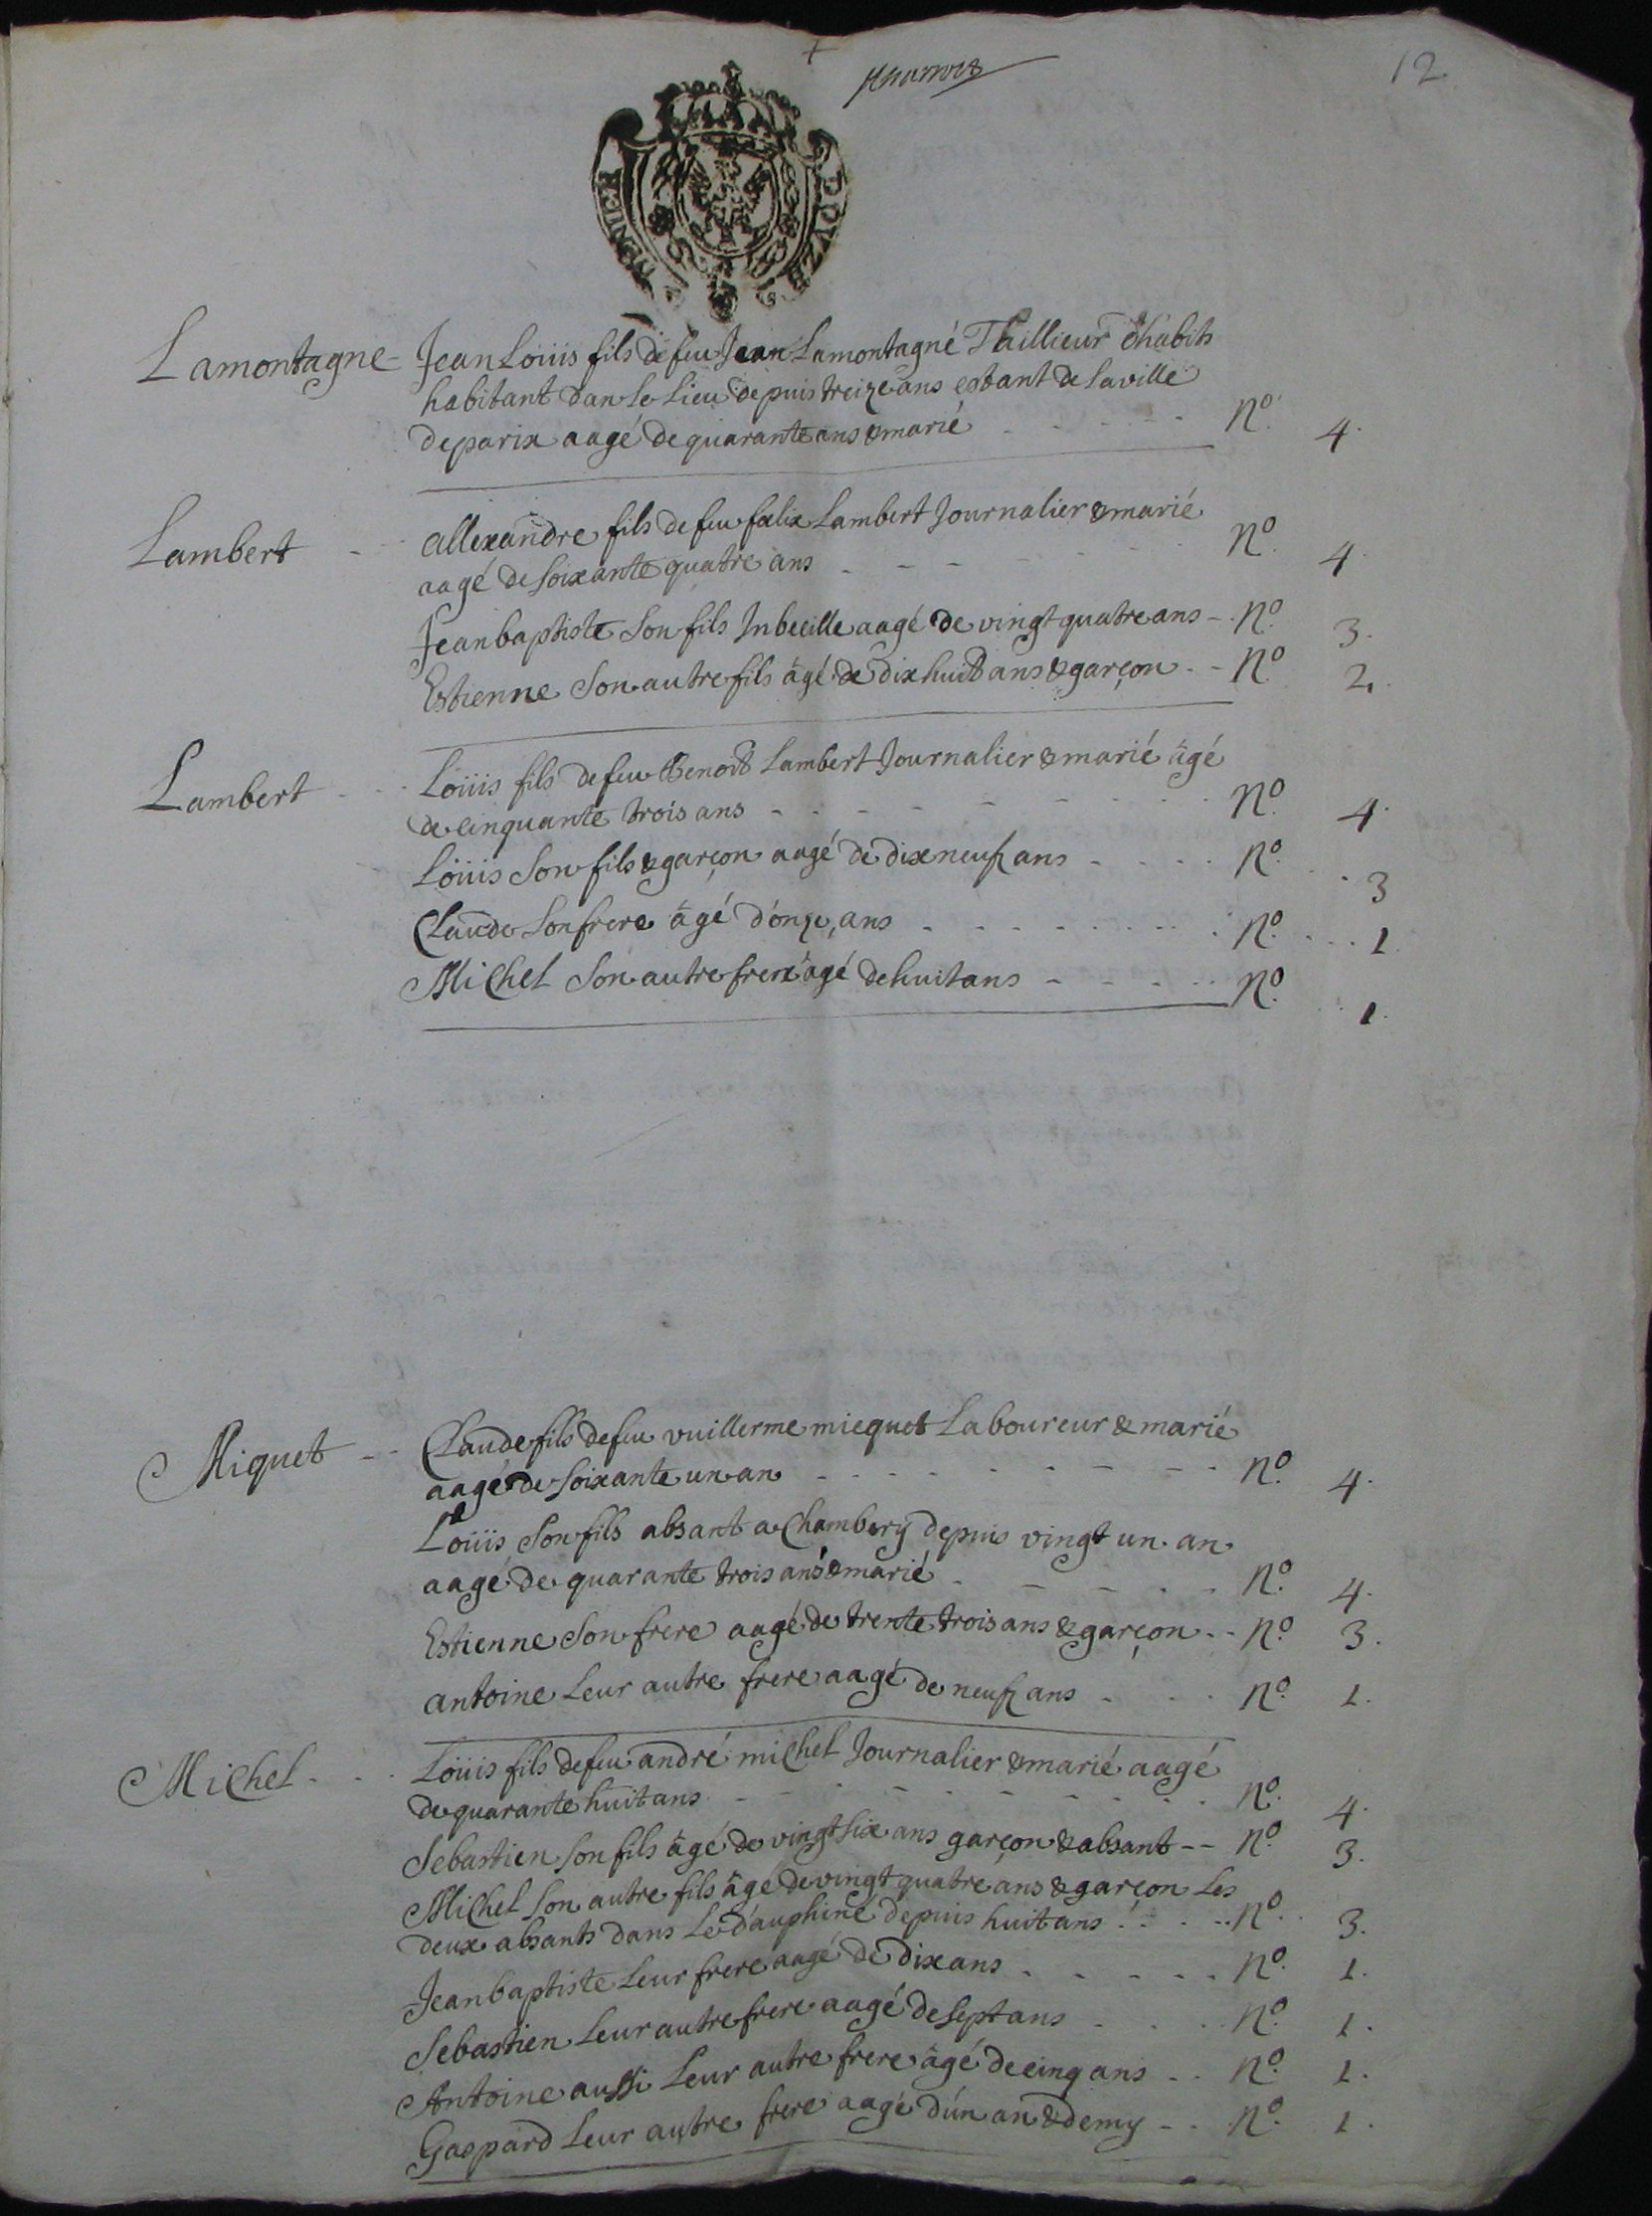 12
DENIER DOVZE
Lamontagne - Jean Loüis fils de feu Jean Lamontagné Tallieur d'habits
habitant dan le lieu depuis treize ans estant de la ville
de parix aagé de quarante ans & marié - - - - - nº. 4.
Lambert - - allexandre fils de feu fælix Lambert Journalier & marié
aagé de soixante quatre ans - - - - - nº. 4
Jean baptiste son fils Inbecille aagé de vingt quatre ans - nº. 3.
Estienne son autre fils âgé de dix huit ans & garçon - - nº 2.
Lambert - - Loüis fils de feu Benoit Lambert Journalier & marié âgé
de cinquante trois ans - - - - - nº. 4.
Loüis son fils & garçon aagé de dix neuf ans - - - - nº. 3
Claude son frere âgé d'onze ans - - - - - nº. 1
Michel son autre frere âgé de huit ans - - - - nº. 1.
Miquet - - Claude fils de feu vuillerme miequet Laboureur & marié
aagé de soixante un an - - - - - nº. 4.
Loüis son fils absant a Chambery depuis vingt un an
aagé de quarante trois ans & marié - - - - - nº. 4.
Estienne son frere aagé de trente trois ans & garçon - - nº. 3.
antoine Leur autre frere aagé de neuf ans - - - nº. 1.
Michel - - Loüis fils de feu andré michel Journalier & marié aagé
de quarante huit ans - - - - - nº. 4.
Sebastien son fils âgé de vingt six ans garçon & absant - - nº. 3.
Michel son autre fils âgé de vingt quatre ans & garçon Les
deux absants dans Le d'auphiné depuis huit ans - - - nº. 3.
Jean baptiste Leur frere aagé de dix ans - - - - - nº. 1.
Sebastien Leur autre frere aagé de sept ans - - - nº. 1.
Antoine aussi Leur autre frere âgé de cinq ans - - nº. 1.
Gaspard Leur autre frere aagé d'un an & demy - - nº. 1.